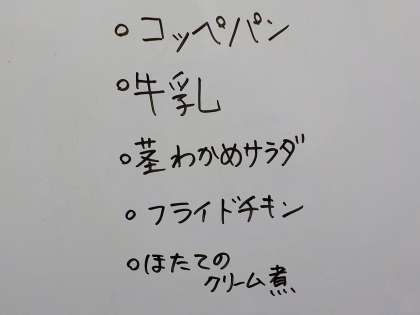 ○コッペパン
○牛乳
○茎わかめサラダ
○フライドチキン
○ほたての
クリーム煮